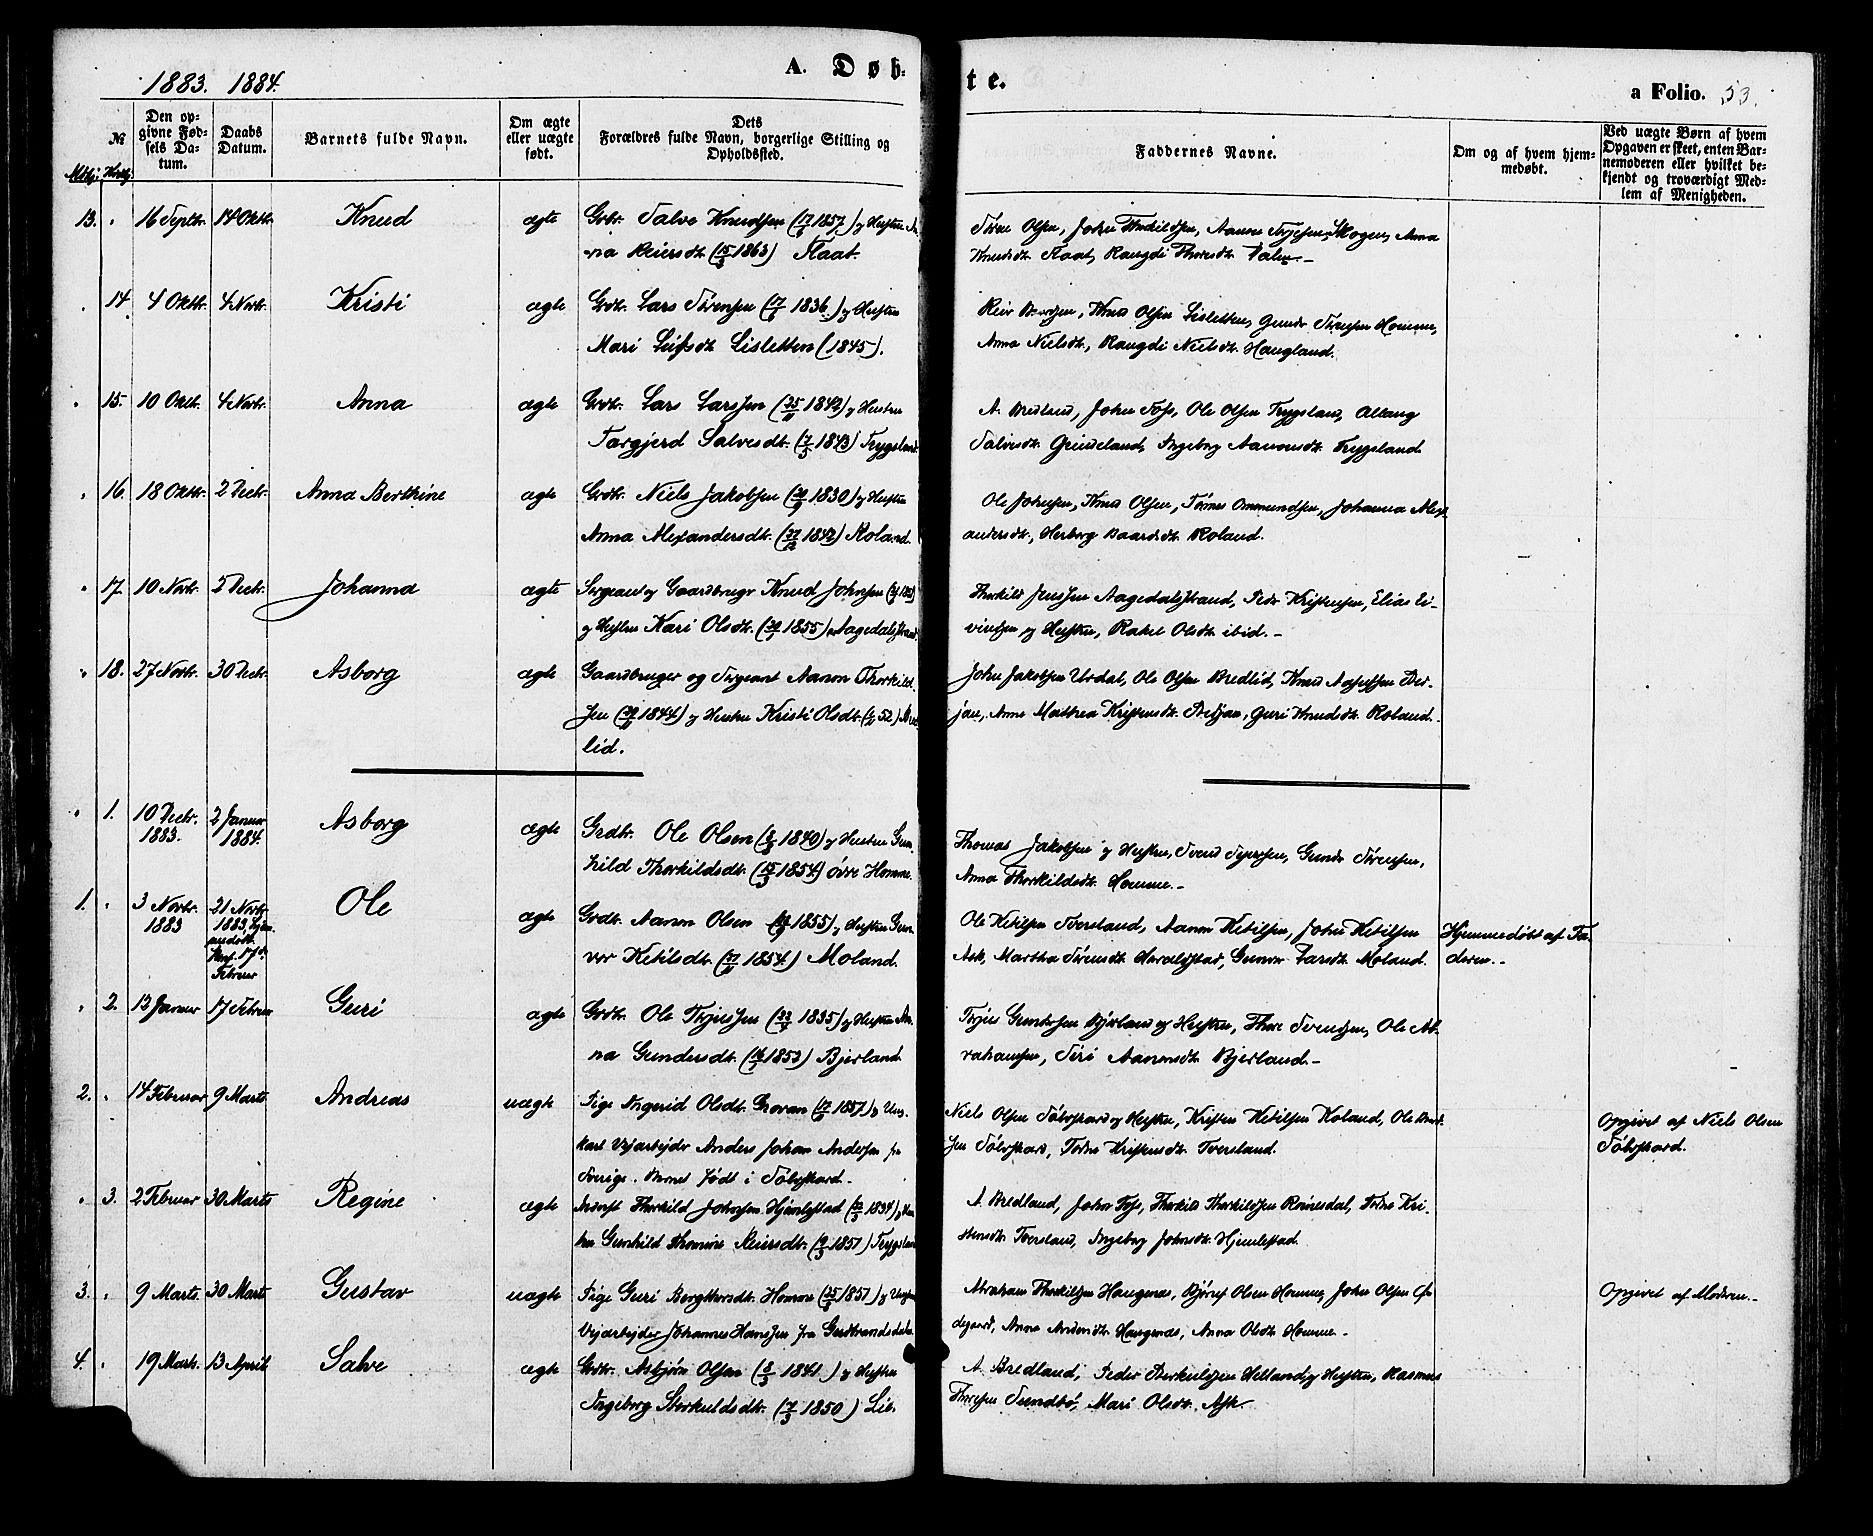 1883. 1884.
A. Døb-
te.
a Folio. 53.
№
Mkj. Kvkj.
Den op-
givne Fød-
sels Da-
tum.
Daabs
Datum.
Barnets fulde Navn.
Om ægte
eller uægte
født.
Dets
Forældres fulde Navn, borgerlige Stilling og
Opholdssted.
Faddernes Navne.
Om og af hvem hjem-
medøbt.
Ved uægte Børn af hvem
Opgaven er skeet, enten Bar-
nemoderen eller hvilket be-
kjendt og troværdigt Med-
lem af Menigheden.
13. " 16 Septbr. 14 Oktbr. Knud ægte Grbr. Salve Knudsen (1857) og Hustru An-
na Reiersdtr. (1863) Flaat.
Knudsdtr. Flaat, Raugdi Thoresdtr.
" 14. 4 Oktbr. 4 Novbr. Kristi ægte Grbr. Lars Sørensen (1836) og Hustru
Mari Leifsdtr. Lisletten (1845).
Olsen Lisletten, Gundr Sørensen Homme,
Anna Nielsdtr., Raugdi Nielsdtr. Haugland.
" 15. 10 Oktbr. 4 Novbr. Anna ægte Grbr. Lars Larssen (25/11 1842) og Hustru
Targjerd Salvesdtr. (7/5 1843) Trygsland
A. Bredland, John Foss, Ole Olsen Trygsland,
Salvesdtr. Grindeland, Ingeborg Aanonsdtr. Trygsland
" 16. 18 Oktbr. 2 Decbr. Anna Berthine ægte Grbr. Niels Jakobsen (1830) og Hustru
Anna Alexandersdtr. (1842) Roland.
Ole Johnsen, Knud Olsen, Tønnes Ommundsen, Johanna Alex-
andersdtr., Herborg Baardsdtr. Roland.
" 17. 10 Novbr. 5 Decbr. Johanna ægte Sergeant og Gaardbruger Knud Johnsen
og Hustru Kari Olsdtr. (1855) Aagedalstrand
Thorkild Jenssen Aagedalstrand, Peder Kristensen, Elias Ei-
vindsen og Hustru, Rakel Olsdtr. ibid.
" 18. 27 Novbr. 30 Decbr. Asborg ægte Gaardbruger og Sergeant Aanon Thorkild-
sen (1844) og Hustru Kristi Olsdtr. (52)
lid.
John Jakobsen Urdal, Ole Olsen Bredlid, Knud
Anne Mathea Kristensdtr. Guri Knudsdtr. Roland.
" 1. 10 Decbr. 1883. 2 Januar 1884. Asborg ægte Grdbr. Ole Olsen (1840) og Hustru Gun-
hild Thorkildsdtr. (15/3 1854) øvre Homme.
Thomas Jakobsen og Hustru, Svend Gundr Sørensen,
Anna Thorkildsdtr. Homme.
1. " 3 Novbr. 1883 21 Novbr. 1883, hjem-
medøbt. 17de
Februar
Ole ægte Grdbr. Aanon Olsen (1855) og Hustru Gun-
vor Ketilsdtr. (1854) Moland.
Ole Ketilsen Tveresland, Aanon Ketilsen, John Ketilsen
Ask, Martha Sørensdtr. Gunvor Larsdtr. Moland.
Hjemmedøbt af Fa-
deren.
" 2. 13 Januar 17 Februar Guri ægte Grdbr. Ole Terjussen (1835) og Hustru An-
na Gundersdtr. (1853) Bjerland.
Terjus Gundersen Bjerland og Hustru, Thore Svendsen, Ole Ab-
rahamsen, Siri Aanonsdtr. Bjerland.
2. " 14 Februar 9 Marts Andreas uægte Pige Ingerid Olsdtr. Groran (1857) og Ung-
karl Vejarbejder Anders Johan Andersen fra
Sverige. Barnet født i Sølvskard.
Niels Olsen Sølvskard og Hustru, Kristen Ketilsen Roland, Ole
sen Sølvskard, Torbor Kristensdtr. Tveresland.
Opgivet af Niels Olsen
Sølvskard.
" 3. 2 Februar 30 Marts Regine ægte Inderst Thorkild Johnsen Hjemlestad (1834) og Hus-
tru Gunhild Thomine Reiersdtr. (1857) Trygsland
A. Bredland, John Foss, Thorkild Thorkildsen Røinesdal, Torbor Kri-
stensdtr. Tveresland, Ingeborg Johnsdtr. Hjemlestad.
3. " 9 Marts. 30 Marts Gustav uægte Pige Guri Bergthorsdtr. Homme (1857) og Ungkarl
Vejarbejder Johannes Hanssen fra
Abraham Thorkildsen Haugenæs, Bjørulf Olsen Homme, John Olsen Ød-
degaard, Anna Haugenæs, Anna Olsdtr. Homme.
Opgivet af Moderen.
4. " 19 Marts. 13 April. Salve ægte Grdbr. Asbjørn Olsen (8/3 1841) og Hustru
Ingeborg Storkuldsdtr. (7/3 1850) Lie.
A. Bredland, Peder Helland og Hustru, Rasmus
Thoresen Sundbø, Mari Olsdtr. Ask.